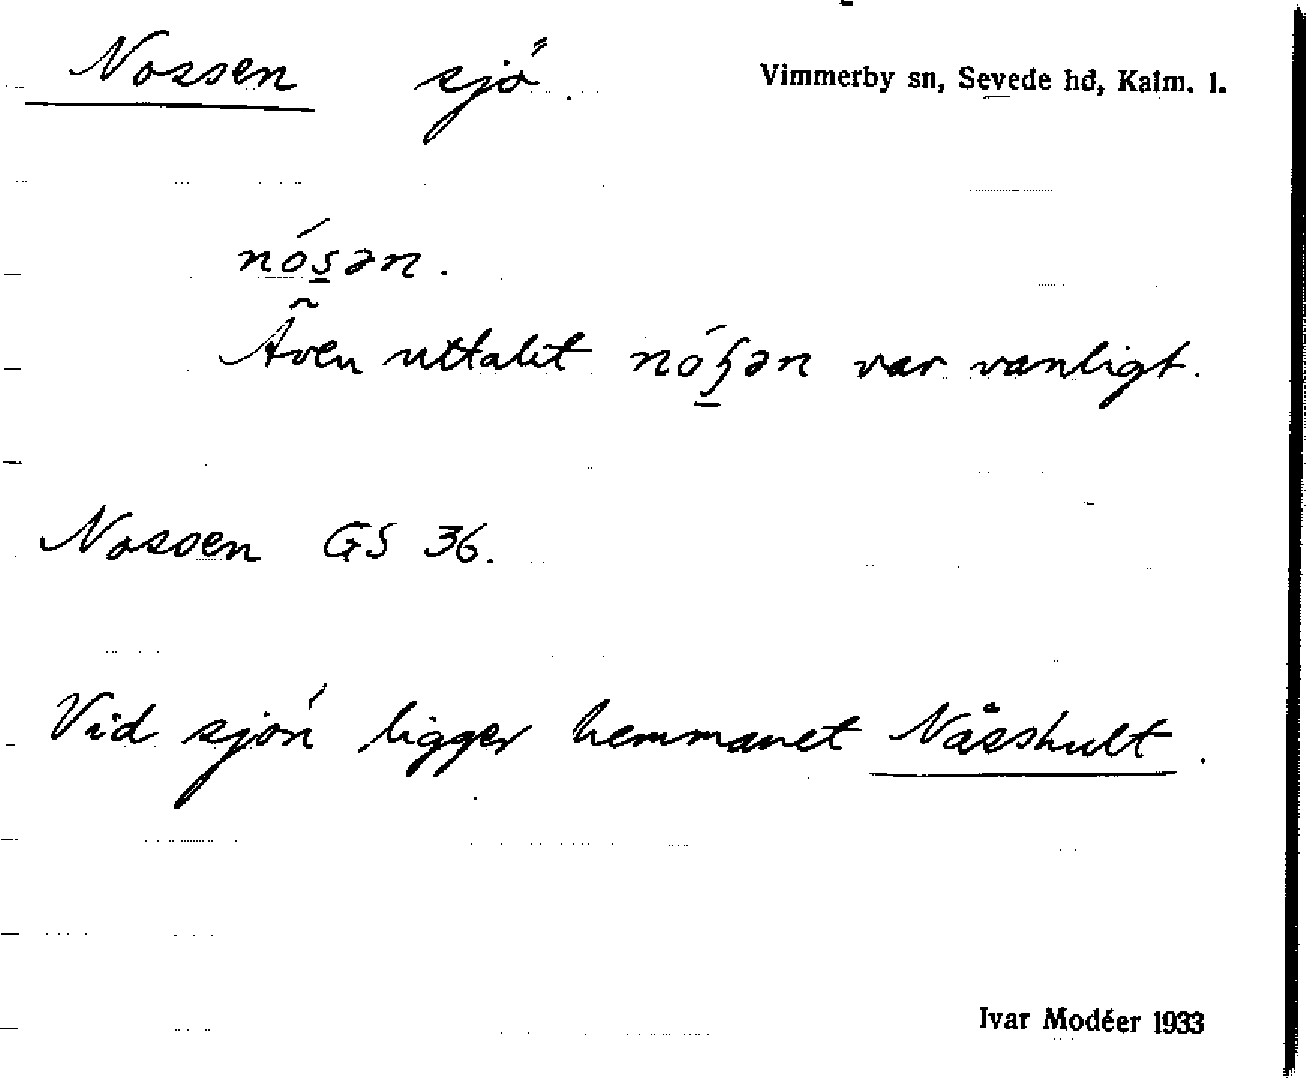 Nossen sjö. Vimmerby sn, Sevede hd, Kalm. l.
nós̲ən.
Även uttalet nóꞕ̲ən var vanligt.
Nossen GS 36.
Vid sjön ligger hemmanet Nässhult.
Ivar Modéer 1933